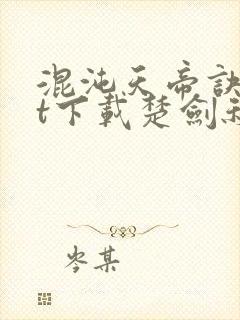 混沌天帝訣
t下載楚劍秋
岑某